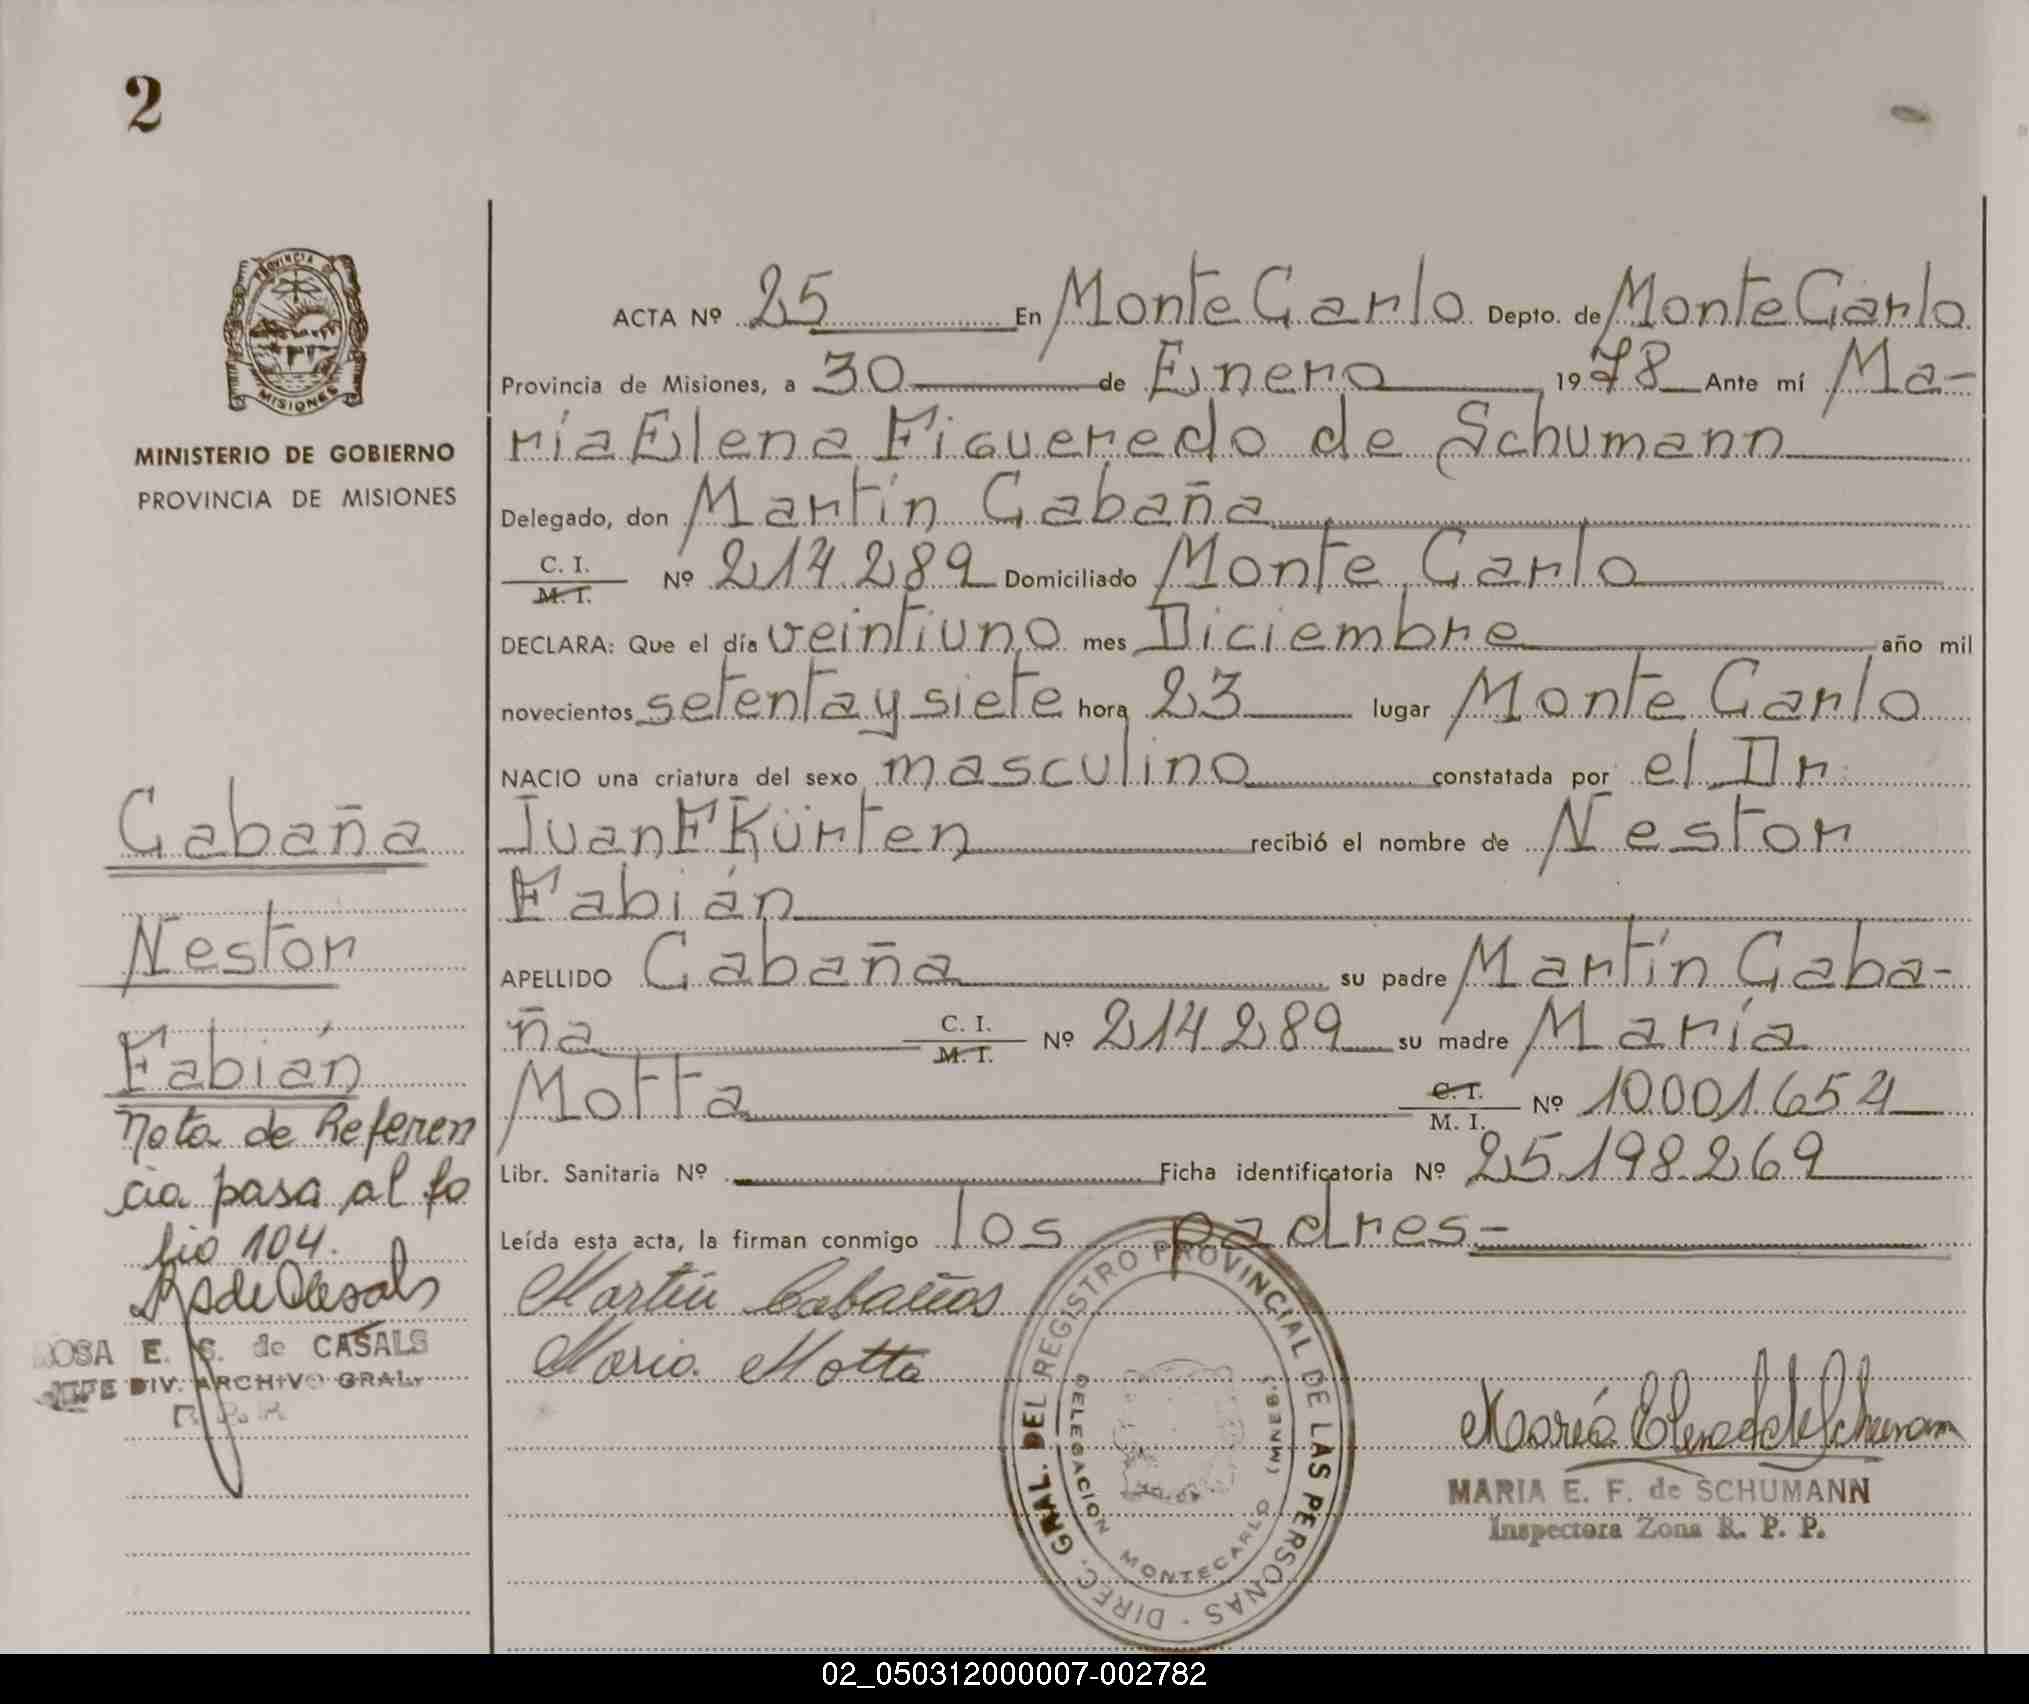 2
PROVINCIA DE
MISIONES
MINISTERIO DE GOBIERNO
PROVINCIA DE MISIONES
Cabaña
Nestor
Fabián
Nota de Referen
cia pasa al fo
lio 104.
ROSA E. S. de CASALS
JEFE DIV. ARCHIVO GRAL.
ACTA Nº 25 En Monte Carlo Depto. de Monte Carlo
Provincia de Misiones, a 30 de Enero 1978 Ante mí Ma-
ría Elena Figueredo de Schumann
Delegado, don Martín Cabaña
C. I.
M. I.
Nº 214.289 Domiciliado Monte Carlo
DECLARA: Que el día veintiuno mes Diciembre año mil
novecientos setenta y siete hora 23 lugar Monte Carlo
NACIO una criatura del sexo masculino constatada por el Dr.
Juan F Kürten recibió el nombre de Nestor
Fabián
APELLIDO Cabaña su padre Martín Caba-
ña C. I.
M. I.
Nº 214.289 su madre María
Motta C. I.
M. I.
Nº 10.001.654
Libr. Sanitaria Nº Ficha identificatoria Nº 25.198.269
Leída esta acta, la firman conmigo los padres-
Martín Cabañas
Maria Motta
DIREC. GRAL. DEL REGISTRO PROVINCIAL DE LAS PERSONAS
DELEGACION MONTECARLO (MNES.)
MARIA E. F. de SCHUMANN
Inspectora Zona R. P. P.
02_050312000007-002782